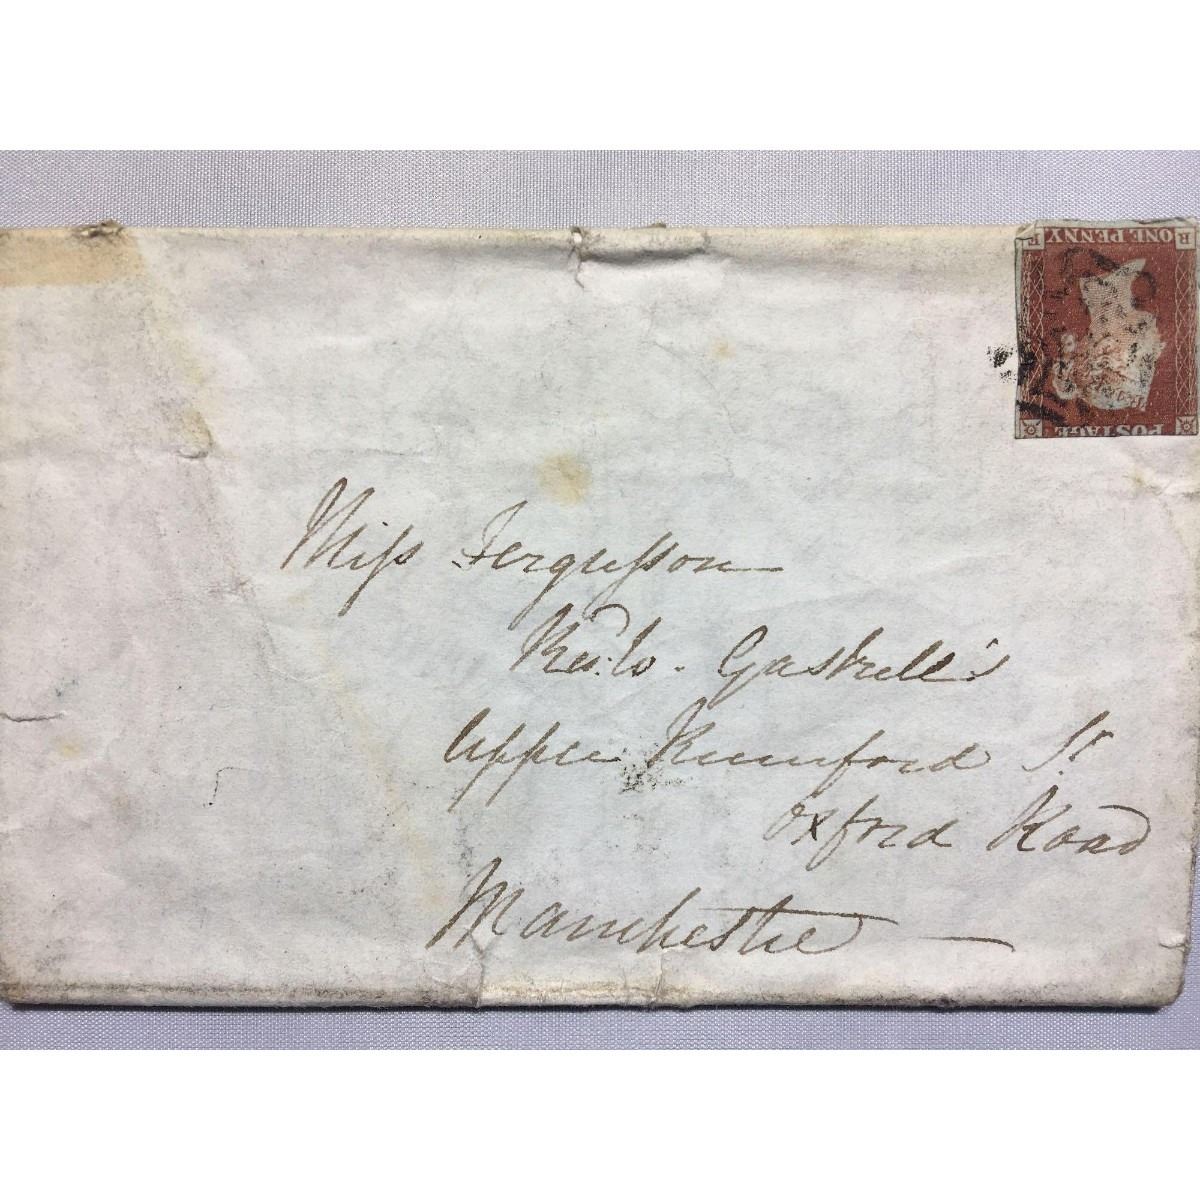 ONE PENNY
POSTAGE
Miss Fergusson
Revd. W. Gaskell's
Upper Rumford St.
Oxford Road
Manchester